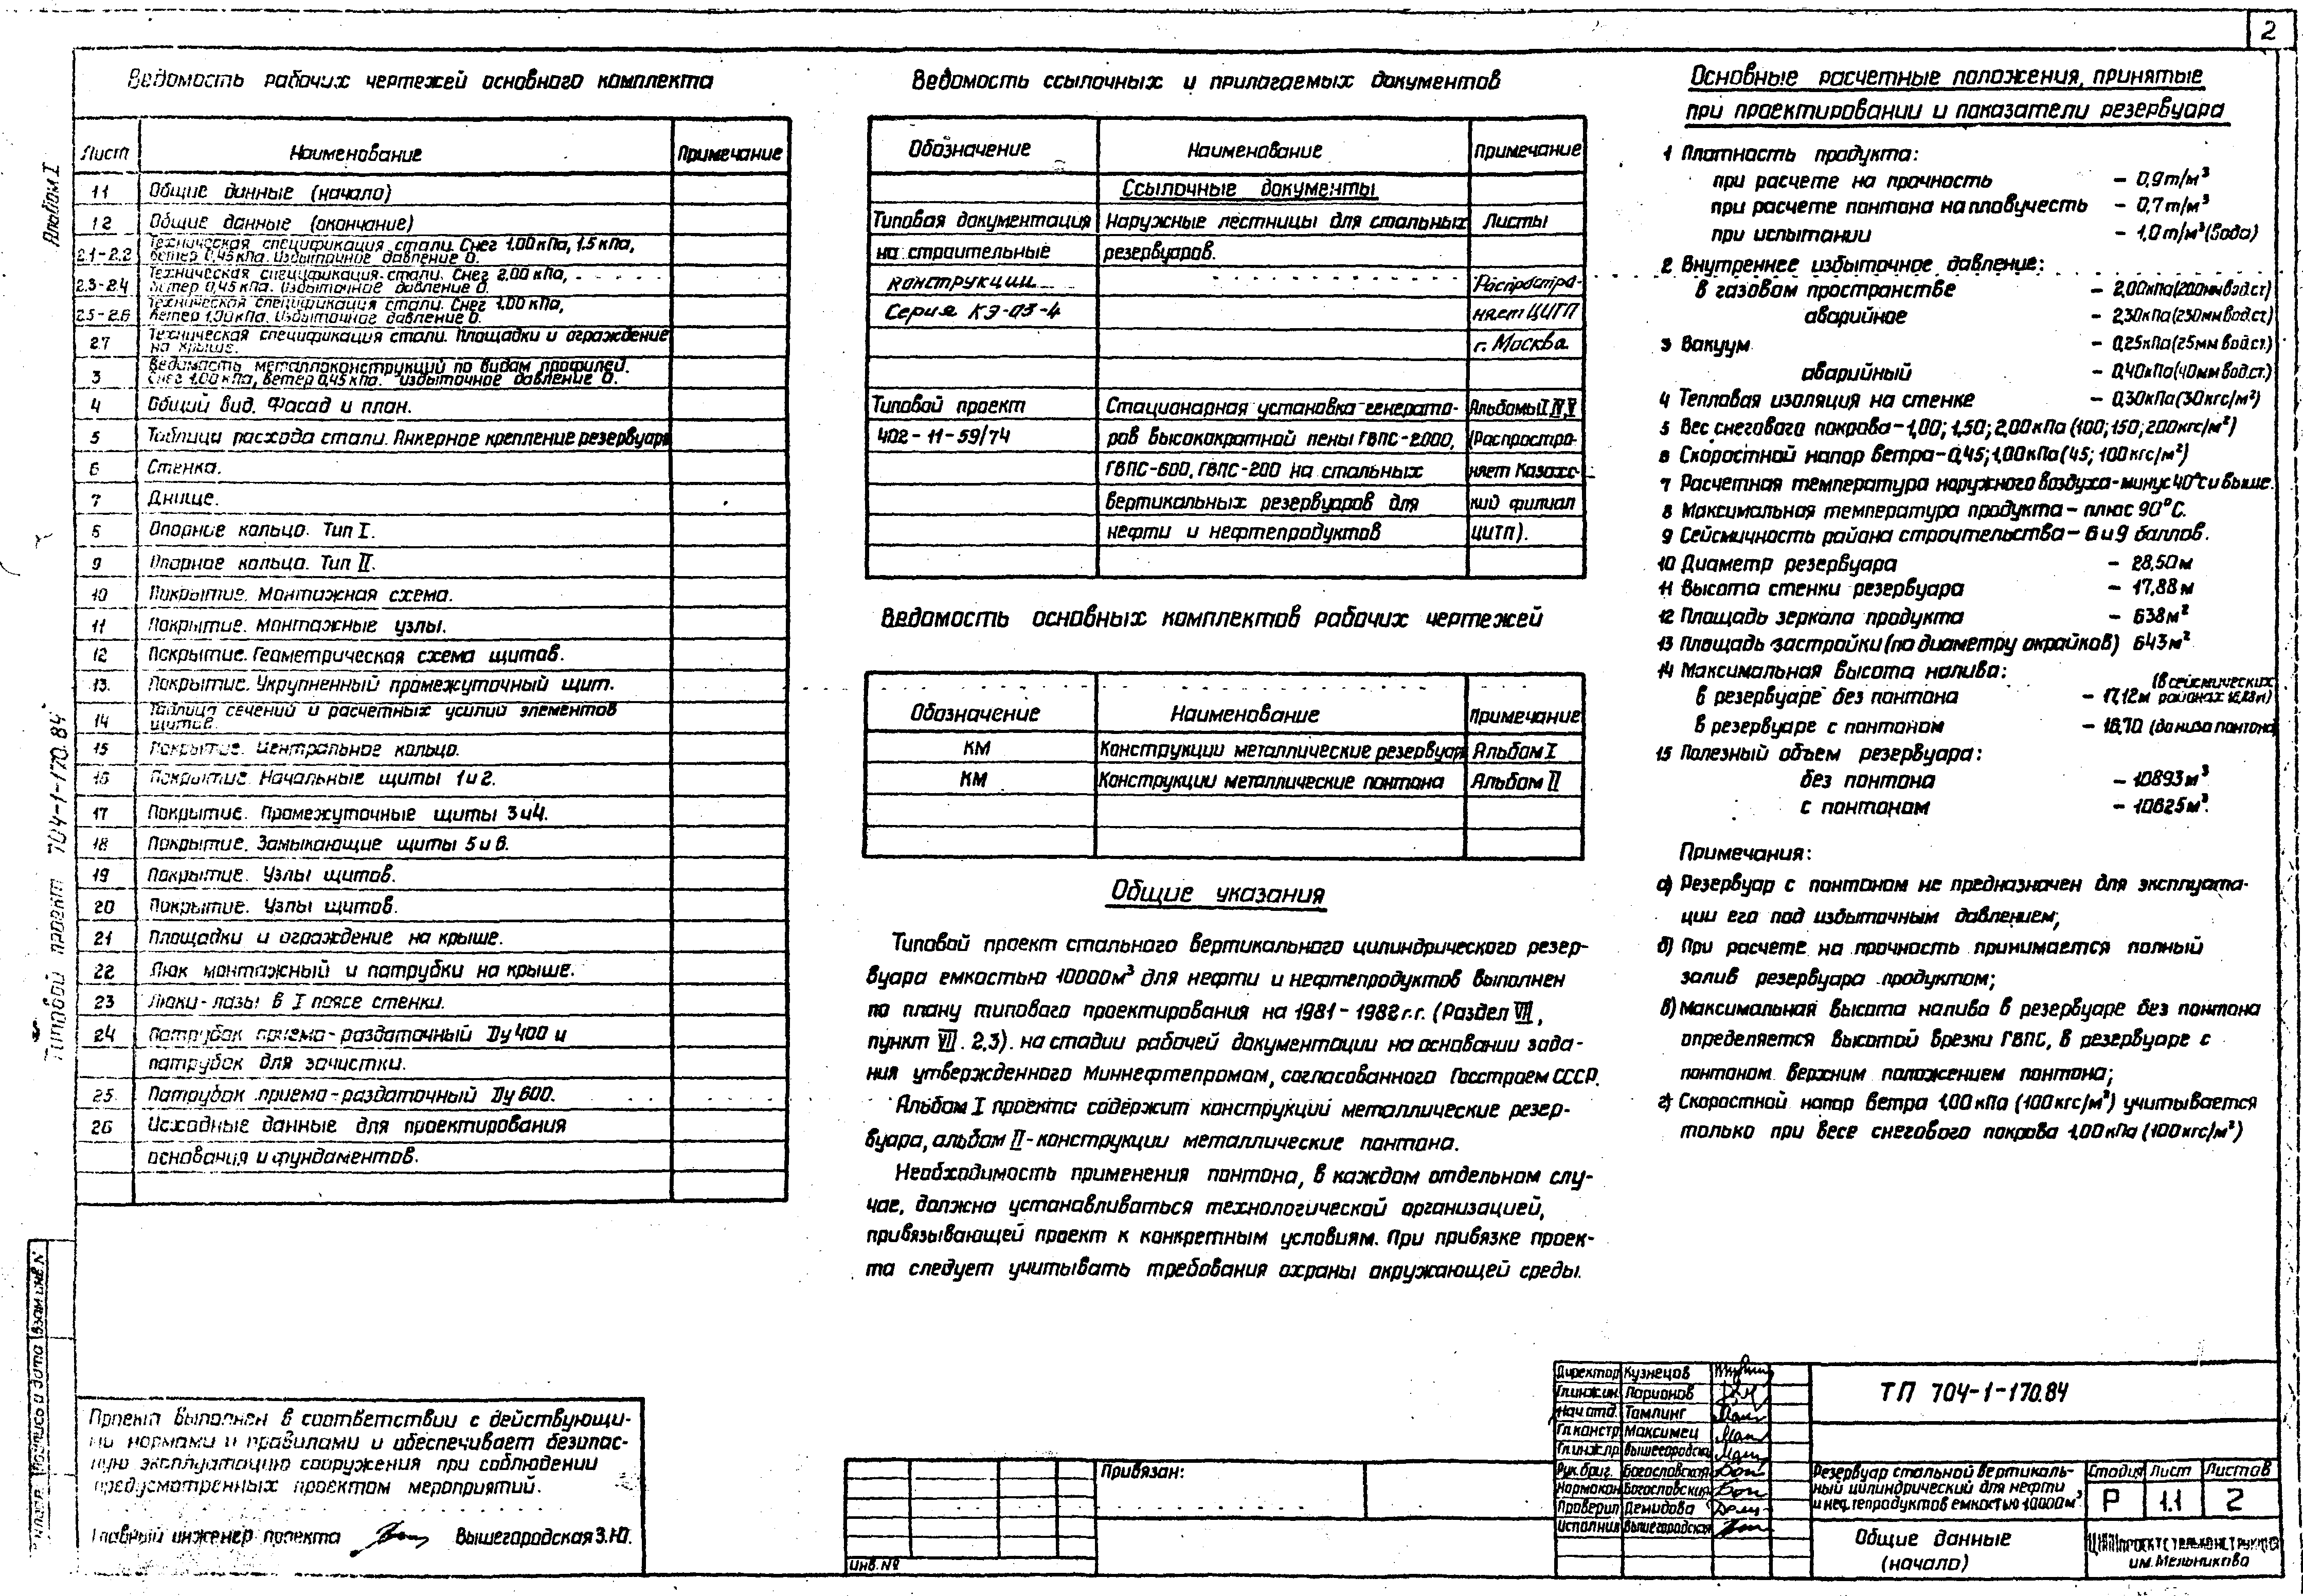 2
Альбом I
Типовой проект 704-1-170.84
Ведомость рабочих чертежей основного комплекта
Лист Наименование Примечание
1.1 Общие данные (начало)
1.2 Общие данные (окончание)
2.1-2.2 Техническая спецификация стали. Снег 1.00 кПа, 1.5 кПа,
ветер 0,45 кПа. Избыточное давление 0.
2.3-2.4 Техническая спецификация стали. Снег 2.00 кПа,
ветер 0,45 кПа. Избыточное давление 0.
2.5-2.6 Техническая спецификация стали. Снег 1.00 кПа,
ветер 1,00 кПа. Избыточное давление 0.
2.7 Техническая спецификация стали. Площадки и ограждение
на крыше.
3 Ведомость металлоконструкций по видам профилей.
Снег 1.00 кПа, ветер 0,45 кПа. Избыточное давление 0.
4 Общий вид. Фасад и план.
5 Таблицы расхода стали. Анкерное крепление резервуара
6 Стенка.
7 Днище.
8 Опорное кольцо. Тип I.
9 Опорное кольцо. Тип II.
10 Покрытие. Монтажная схема.
11 Покрытие. Монтажные узлы.
12 Покрытие. Геометрическая схема щитов.
13. Покрытие. Укрупненный промежуточный щит.
14 Таблица сечений и расчетных усилий элементов
щитов.
15 Покрытие. Центральное кольцо.
16 Покрытие. Начальные щиты 1 и 2.
17 Покрытие. Промежуточные щиты 3 и 4.
18 Покрытие. Замыкающие щиты 5 и 6.
19 Покрытие. Узлы щитов.
20 Покрытие. Узлы щитов.
21 Площадки и ограждение на крыше.
22 Люк монтажный и патрубки на крыше.
23 Люки-лазы в I поясе стенки.
24 Патрубок приемо-раздаточный Ду 400 и
патрубок для зачистки.
25. Патрубок приемо-раздаточный Ду 600.
26 Исходные данные для проектирования
основания и фундаментов.
Проект выполнен в соответствии с действующи-
ми нормами и правилами и обеспечивает безопас-
ную эксплуатацию сооружения при соблюдении
предусмотренных проектом мероприятий.
Главный инженер проекта Вышегородская З.Ю.
Ведомость ссылочных и прилагаемых документов
Обозначение Наименование Примечание
Ссылочные документы
Типовая документация Наружные лестницы для стальных Листы
на строительные резервуаров.
конструкции Распростра-
Серия КЭ-03-4 няет ЦИТП
г. Москва
Типовой проект Стационарная установка генерато- Альбомы II, IV, V
402-11-59/74 ров высокократной пены ГВПС-2000, (Распростра-
ГВПС-600, ГВПС-200 на стальных няет Казахс-
вертикальных резервуаров для кий филиал
нефти и нефтепродуктов ЦИТП).
Ведомость основных комплектов рабочих чертежей
Обозначение Наименование Примечание
КМ Конструкции металлические резервуара Альбом I
КМ Конструкции металлические понтона Альбом II
Общие указания
Типовой проект стального вертикального цилиндрического резер-
вуара емкостью 10000м³ для нефти и нефтепродуктов выполнен
по плану типового проектирования на 1981-1982 г.г. (Раздел VII,
пункт VII. 2.3). на стадии рабочей документации на основании зада-
ния утвержденного Миннефтепромом, согласованного Госстроем СССР.
Альбом I проекта содержит конструкций металлические резер-
вуара, альбом II - конструкции металлические понтона.
Необходимость применения понтона, в каждом отдельном слу-
чае, должна устанавливаться технологической организацией,
привязывающей проект к конкретным условиям. При привязке проек-
та следует учитывать требования охраны окружающей среды.
Основные расчетные положения, принятые
при проектировании и показатели резервуара
1 Плотность продукта:
при расчете на прочность - 0,9 т/м³
при расчете понтона на плавучесть - 0,7 т/м³
при испытании - 1,0 т/м³ (вода)
2 Внутреннее избыточное давление:
в газовом пространстве - 2,00 кПа (200 мм вод.ст)
аварийное - 2,30 кПа (230 мм вод.ст.)
3 Вакуум - 0,25 кПа (25 мм вод.ст.)
аварийный - 0,40 кПа (40 мм вод.ст.)
4 Тепловая изоляция на стенке - 0,30 кПа (30 кгс/м²)
5 Вес снегового покрова - 1,00; 1,50; 2,00 кПа (100; 150; 200 кгс/м²)
6 Скоростной напор ветра - 0,45; 1,00 кПа (45; 100 кгс/м²)
7 Расчетная температура наружного воздуха - минус 40°С и выше.
8 Максимальная температура продукта - плюс 90°С.
9 Сейсмичность района строительства - 6 и 9 баллов.
10 Диаметр резервуара - 28,50 м
11 Высота стенки резервуара - 17,88 м
12 Площадь зеркала продукта - 638 м²
13 Площадь застройки (по диаметру окрайков) 643 м²
14 Максимальная высота налива:
в резервуаре без понтона - 17,12м (в сейсмических районах
в резервуаре с понтоном - 16,70 (до низа понтона)
15 Полезный объем резервуара:
без понтона - 10893 м³
с понтоном - 10625 м³.
Примечания:
а) Резервуар с понтоном не предназначен для эксплуата-
ции его под избыточным давлением;
б) При расчете на прочность принимается полный
залив резервуара продуктом;
в) Максимальная высота налива в резервуаре без понтона
определяется высотой врезки ГВПС, в резервуаре с
понтоном верхним положением понтона;
г) Скоростной напор ветра 1.00 кПа (100 кгс/м²) учитывается
только при весе снегового покрова 1.00 кПа (100 кгс/м²)
Привязан:
Инв. №
Директор Кузнецов
Гл.инж.ин. Ларионов
Нач.отд. Томлинг
Гл.констр. Максимец
Гл.инж.пр. Вышегородская
Рук.бриг. Богословская
Нормокон. Богословская
Проверил Демидова
Исполнил Вышегородская
ТП 704-1-170.84
Резервуар стальной вертикаль-
ный цилиндрический для нефти
и нефтепродуктов емкостью 10000м³
Стадия Лист Листов
Р 1.1 2
Общие данные
(начало)
ЦНИИПРОЕКТСТАЛЬКОНСТРУКЦИЯ
им. Мельникова
Подпись и дата
Взам инв. №